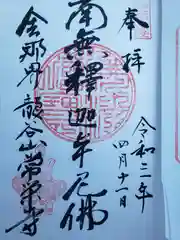 奉拝
令和三年
四月十一日
南無釋迦牟尼佛
龍谷山常栄寺